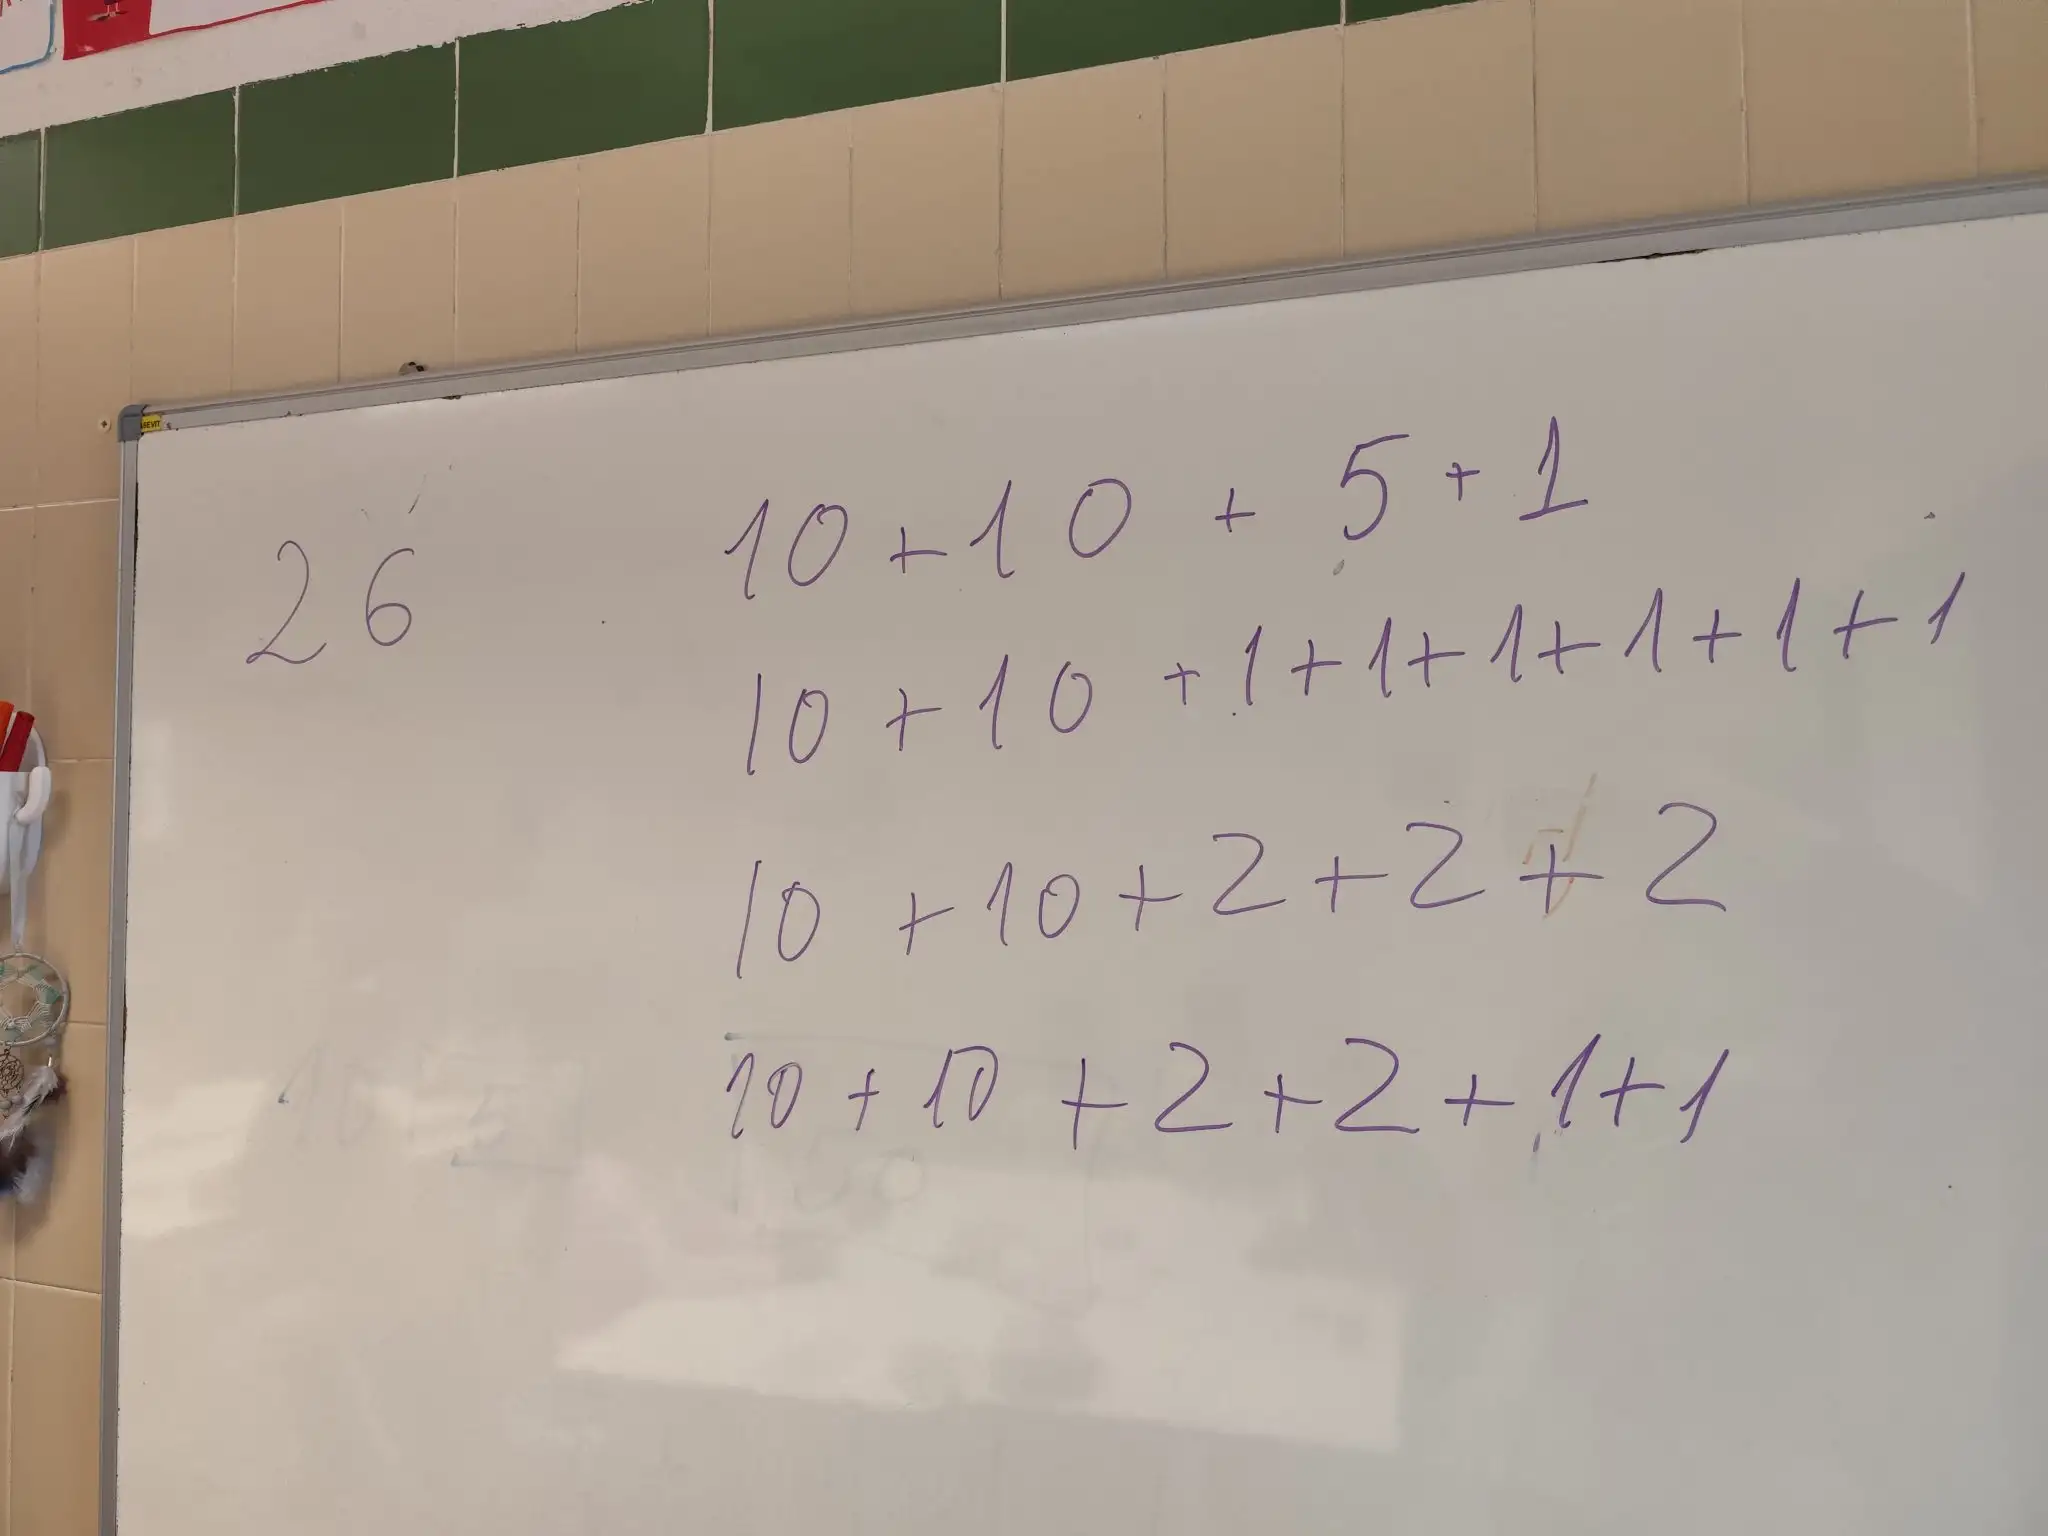 26
10+10+5+1
10+10+1+1+1+1+1+1
10+10+2+2+2
10+10+2+2+1+1